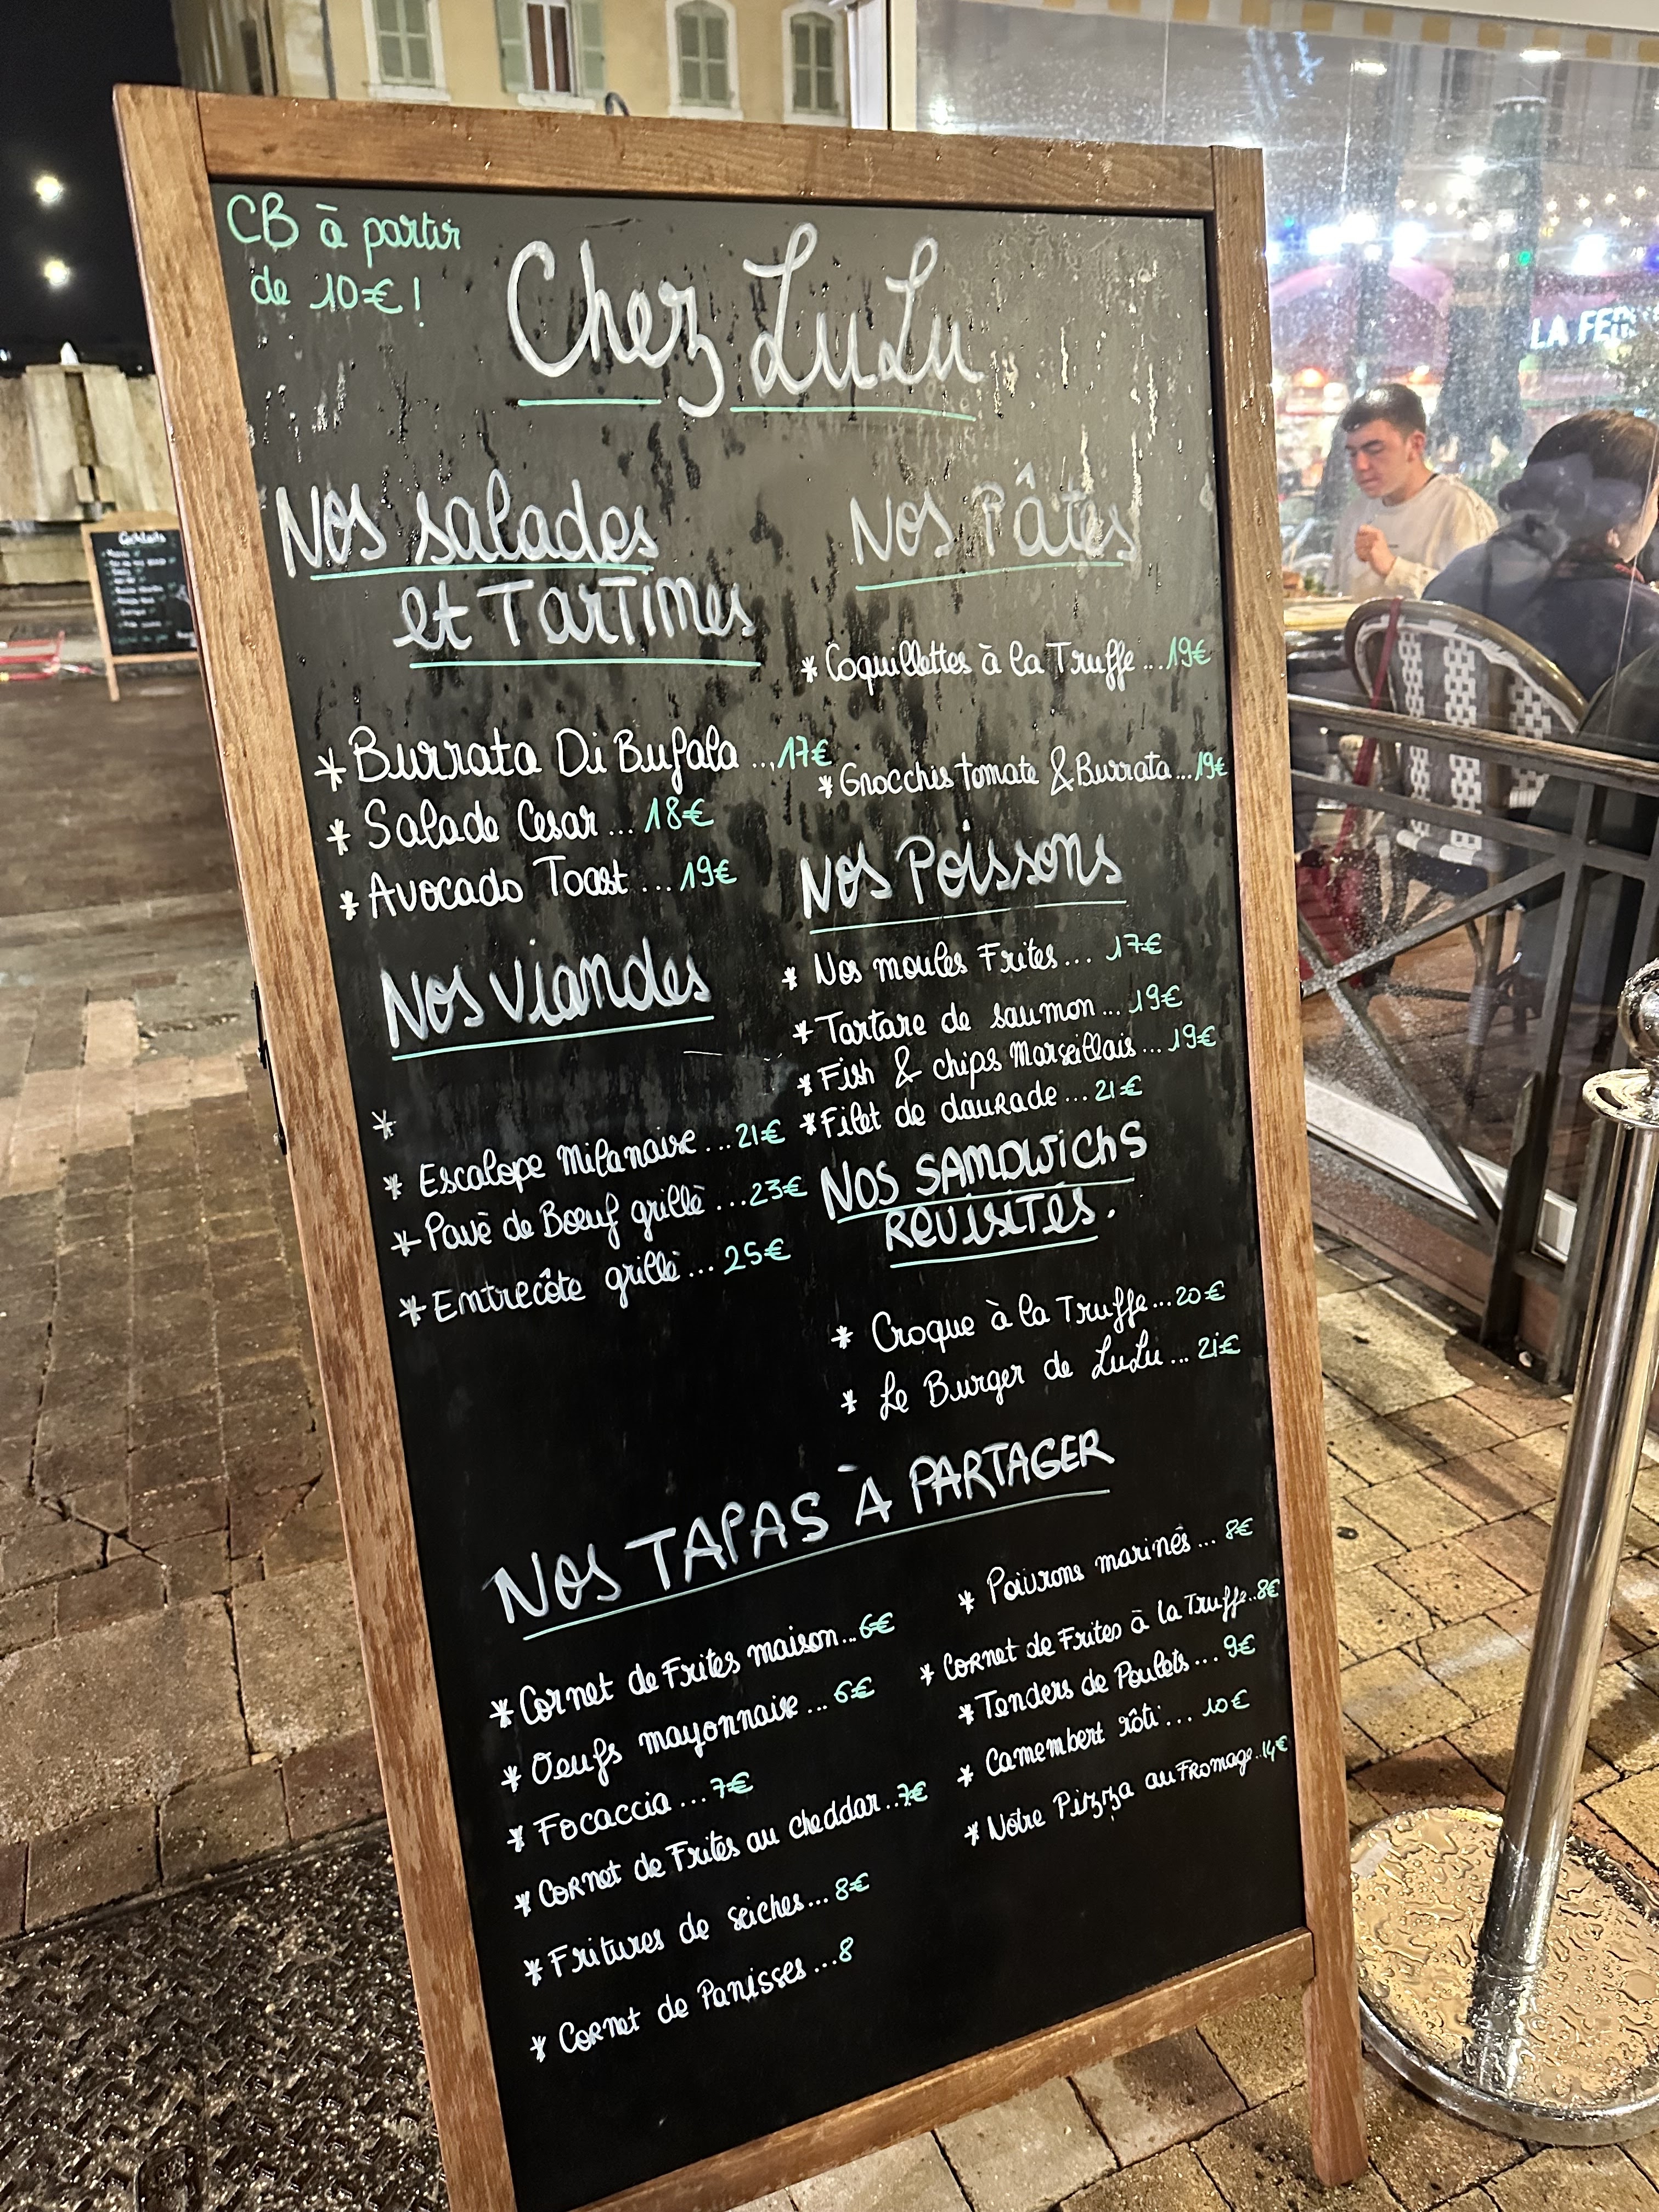 CB à partir
de 10€!
Chez LuLu
Nos salades
et Tartines
* Burrata Di Bufala ...17€
* Salade Cesar ... 18€
* Avocado Toast ... 19€
Nos Viandes
*
* Escalope Milanaise ...21€
* Pavè de Bœuf grillè ...23€
* Entrecôte grillè ... 25€
Nos Pâtes
* Coquillettes à la Truffe ...19€
* Gnocchis tomate & Burrata ...19€
Nos Poissons
* Nos moules Frites ... 17€
* Tartare de saumon ... 19€
* Fish & chips Marseillais ... 19€
* Filet de daurade ... 21€
Nos SANDWichS
REVISITÉS.
* Croque à la Truffe ...20€
* Le Burger de LuLu ... 21€
Nos TAPAS À PARTAGER
* Cornet de Frites maison ...6€
* Oeufs mayonnaise ... 6€
* Focaccia ... 7€
* Cornet de Frites au cheddar ..7€
* Fritures de seiches ... 8€
* Cornet de Panisses ...8
* Poivrons marinés ... 8€
* Cornet de Frites à la Truffe ..8€
* Tenders de Poulets ... 9€
* Camembert rôti ... 10€
* Nôtre Pizza au Fromage ..14€
Cocktails
LA FE